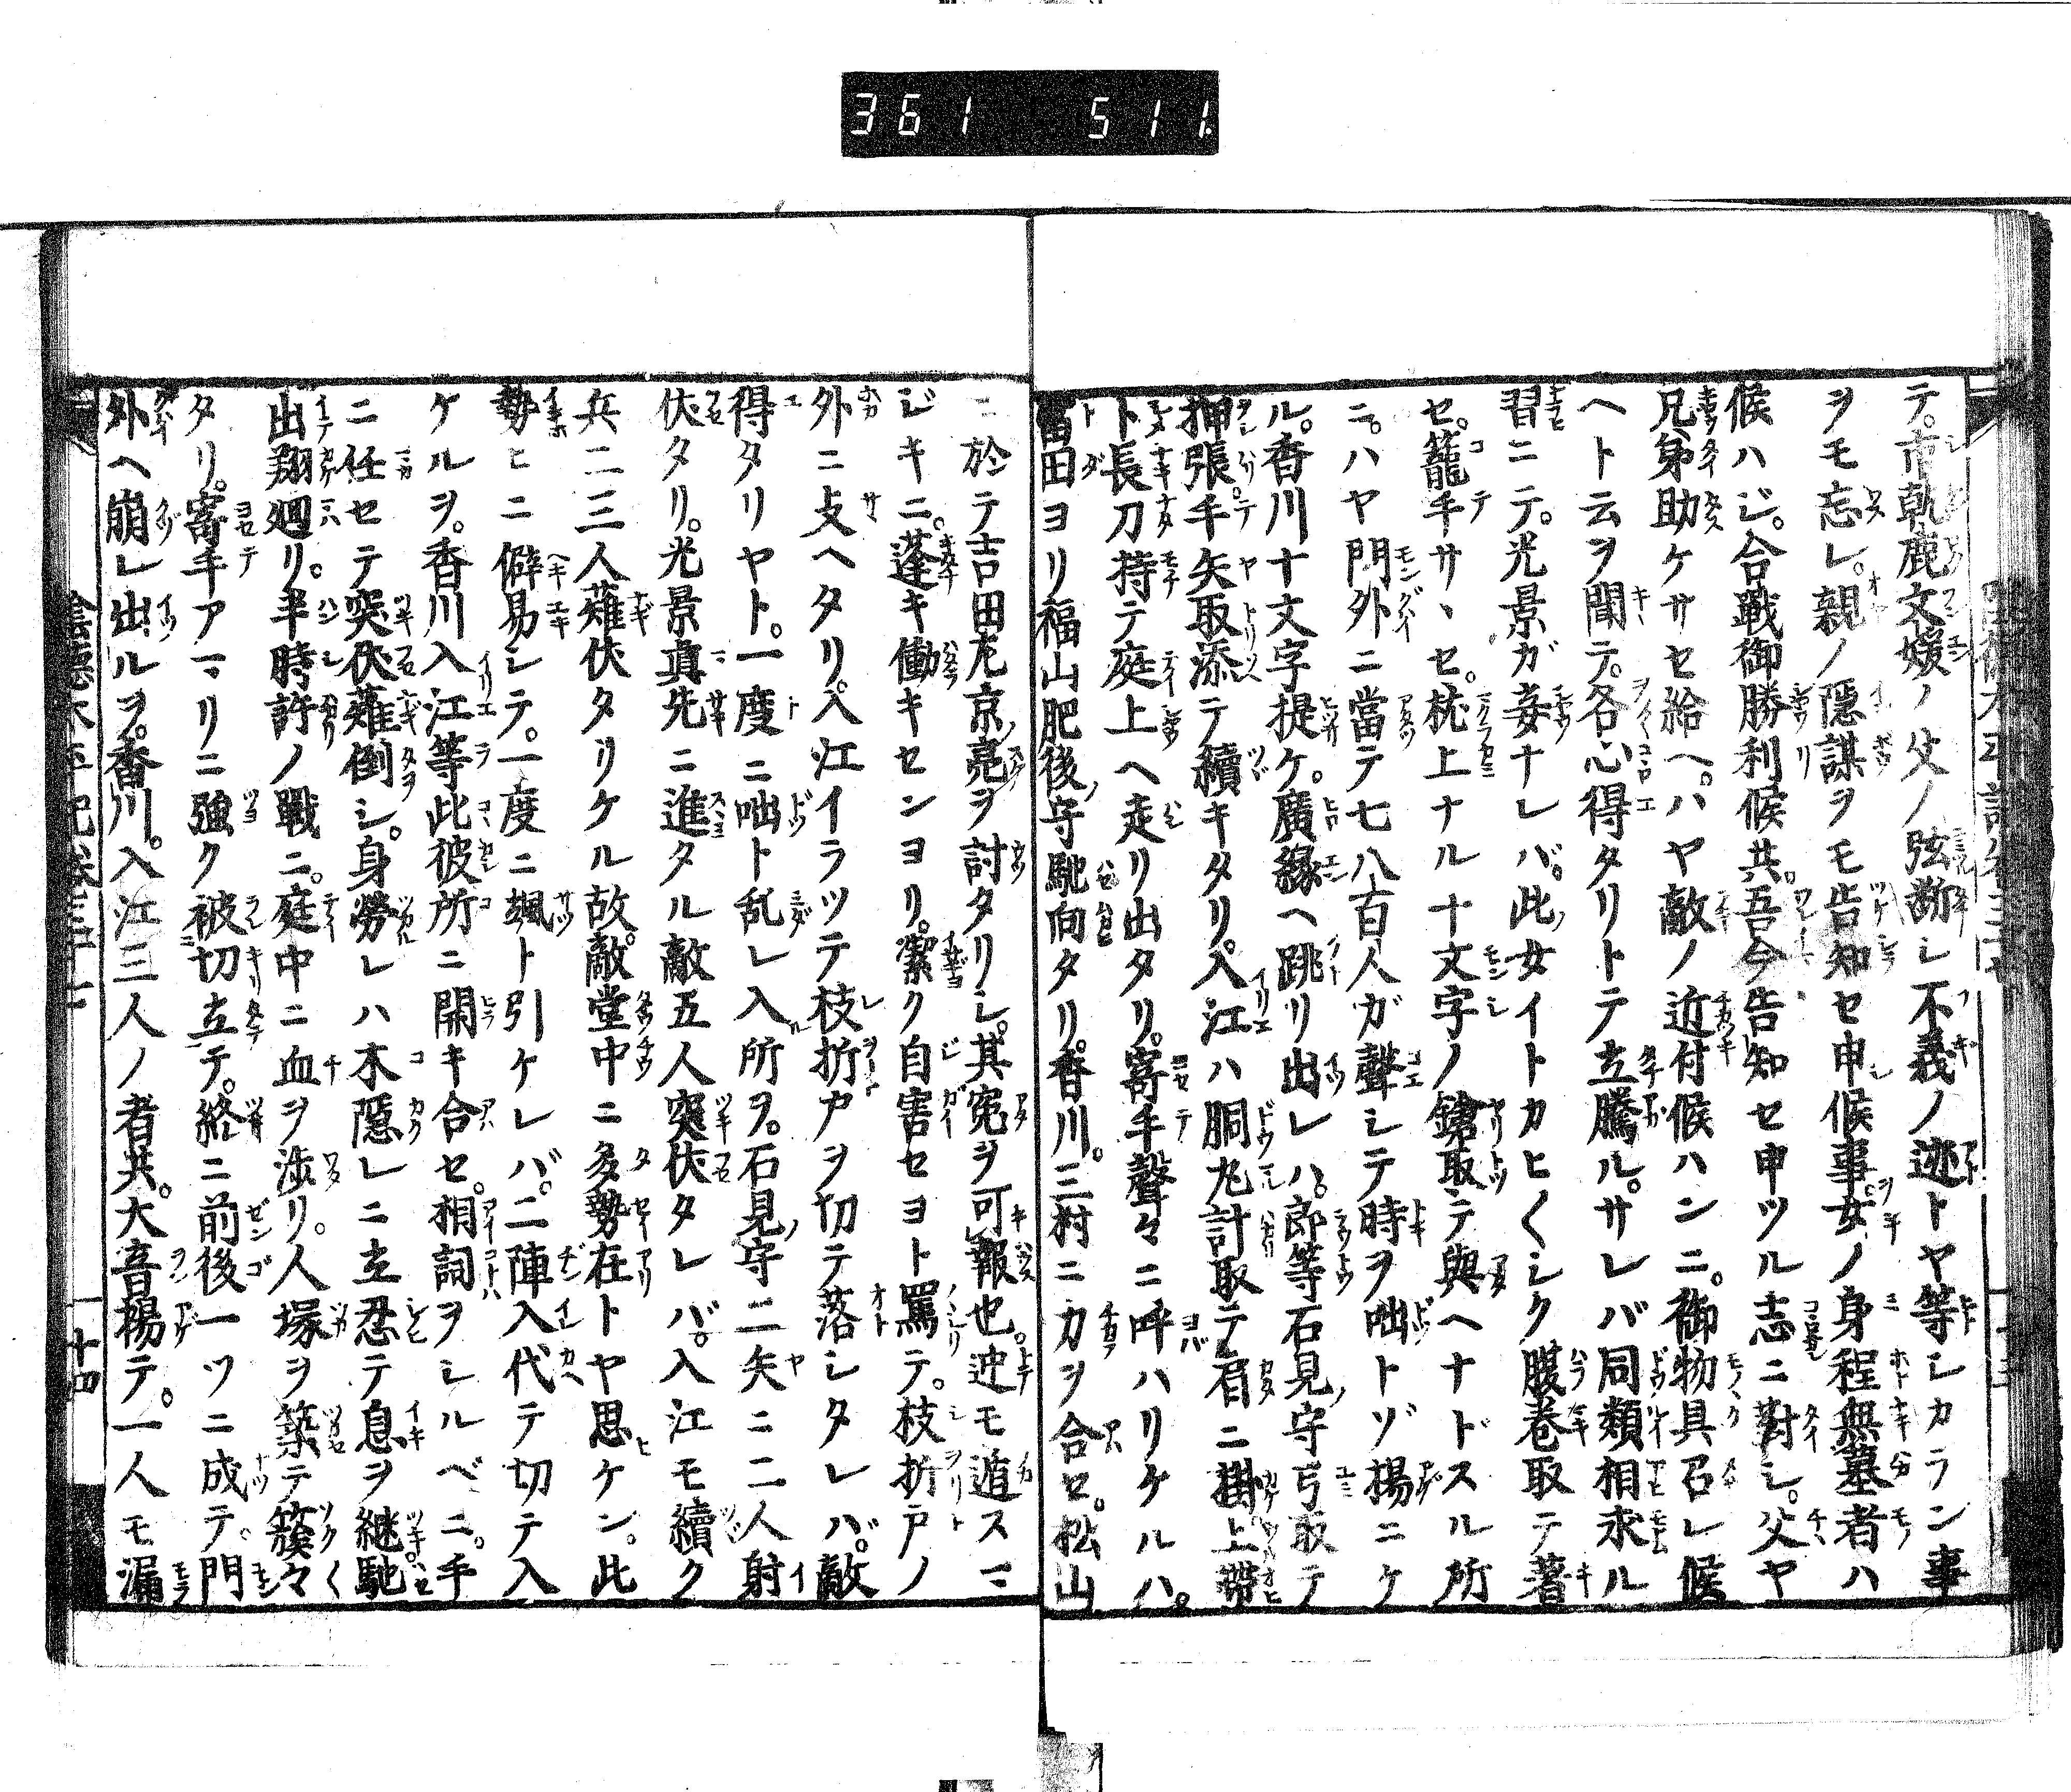 361 511.
テ。市乾鹿文媛ノ父ノ弦断シ不義ノ迹トヤ等シカラン事
ヲモ忘レ。親ノ隠謀ヲモ告知セ申候事。女ノ身程無墓者ハ
候ハジ。合戰御勝利候共。吾今告知セ申ツル志ニ對シ。父ヤ
兄弟助ケサセ給ヘ。ハヤ敵ノ近付候ハンニ。御物具召レ候
ヘト云ヲ聞テ。各心得タリトテ立騰ル。サレバ同類相求ル
習ニテ。光景ガ妾ナレバ。此女イトカヒ〱シク腹巻取テ著
セ。籠手サヽセ。枕上ナル十文字ノ鎗取テ與ヘナドスル所
ニ。ハヤ門外ニ當テ七八百人ガ聲シテ時ヲ咄トゾ揚ニケ
ル。香川十文字提ケ。廣縁ヘ跳リ出レハ。郎等石見守弓取テ
押張。手矢取添テ續キタリ。入江ハ胴丸計取テ肩ニ掛。上帶
ト長刀持テ庭上ヘ走リ出タリ。寄手聲々ニ呼ハリケルハ。
冨田ヨリ福山肥後守馳向タリ。香川。三村ニカヲ合セ。松山
ニ於テ吉田左京亮ヲ討タリシ。其寃ヲ可報也。迚モ遁スマ
ジキニ。蓬キ働キセンヨリ。潔ク自害セヨト罵テ。枝折戸ノ
外ニ支ヘタリ。入江イラツテ枝折戸ヲ切テ落シタレバ。敵
得タリヤト。一度ニ咄ト乱レ入所ヲ。石見守二矢ニ二人射
伏タリ。光景真先ニ進タル敵五人突伏タレバ。入江モ續ク
兵二三人薙伏タリケル故。敵堂中ニ多勢在トヤ思ケン。此
勢ヒニ僻易シテ。一度ニ颯ト引ケレバ。二陣入代テ切テ入
ケルヲ。香川入江等此彼所ニ開キ合セ。相詞ヲシルベニ。手
ニ任セテ突伏薙倒シ。身勞レハ木隠レニ立忍テ息ヲ継。馳
出翔廻リ。半時許ノ戰ニ。庭中ニ血ヲ渉リ。人塚ヲ築テ簇々
タリ。寄手アマリニ強ク被切立テ。終ニ前後一ツニ成テ。門
外ヘ崩レ出ルヲ。香川。入江三人ノ者共。大音揚テ。一人モ漏
陰德太平記卷三十一
十四